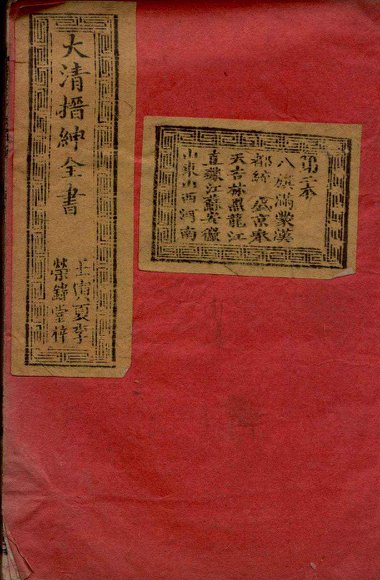 大清搢紳全書
壬寅夏季
榮錄堂梓
第二本
八旗滿蒙漢
都統 盛京奉
天吉林黑龍江
直隸江蘇安徽
山東山西河南